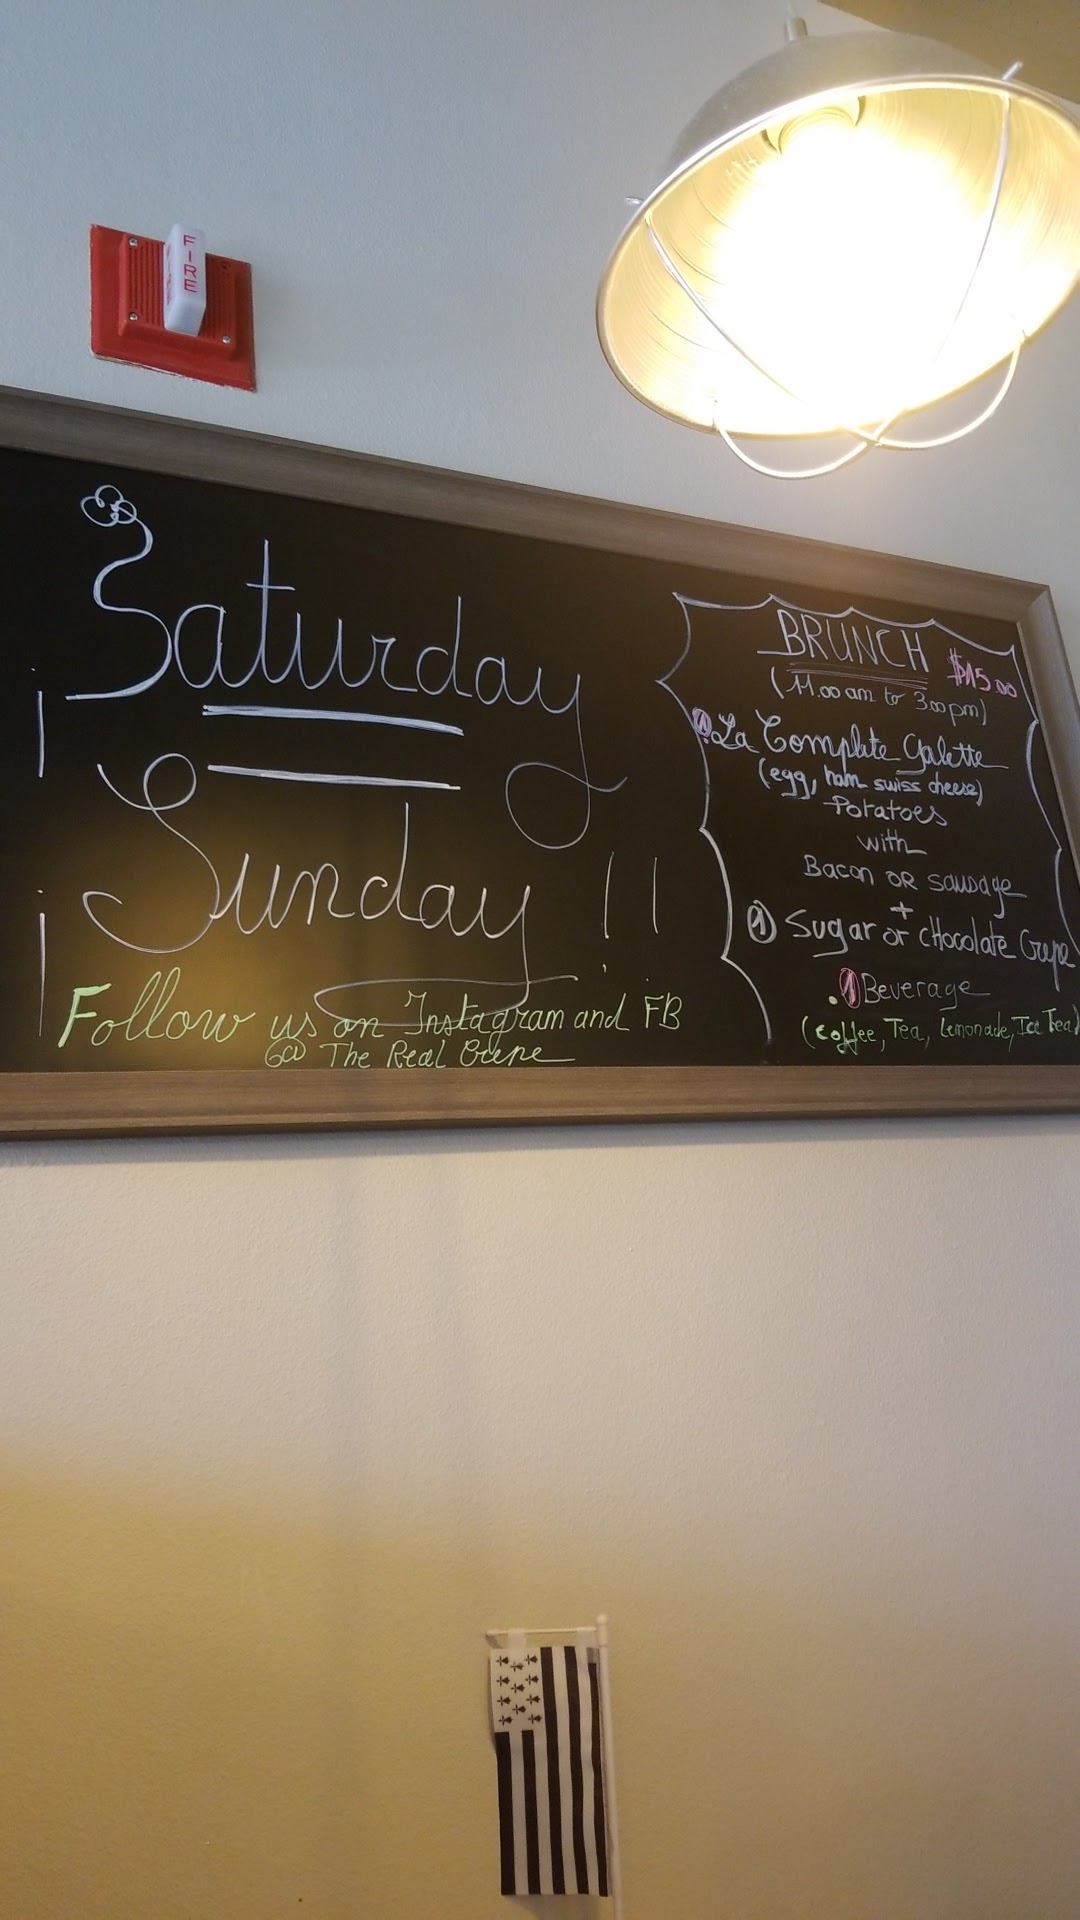 FIRE
¡ Saturday
¡ Sunday !!
Follow us on Instagram and FB
@ The Real Crepe
BRUNCH $15.00
(11.00 am to 3.00 pm)
1 La Complete Galette
(egg, ham swiss cheese)
Potatoes
with
Bacon OR sausage
+
1 Sugar or CHocolate Crepe
.1 Beverage
(coffee, Tea, Lemonade, Ice Tea)